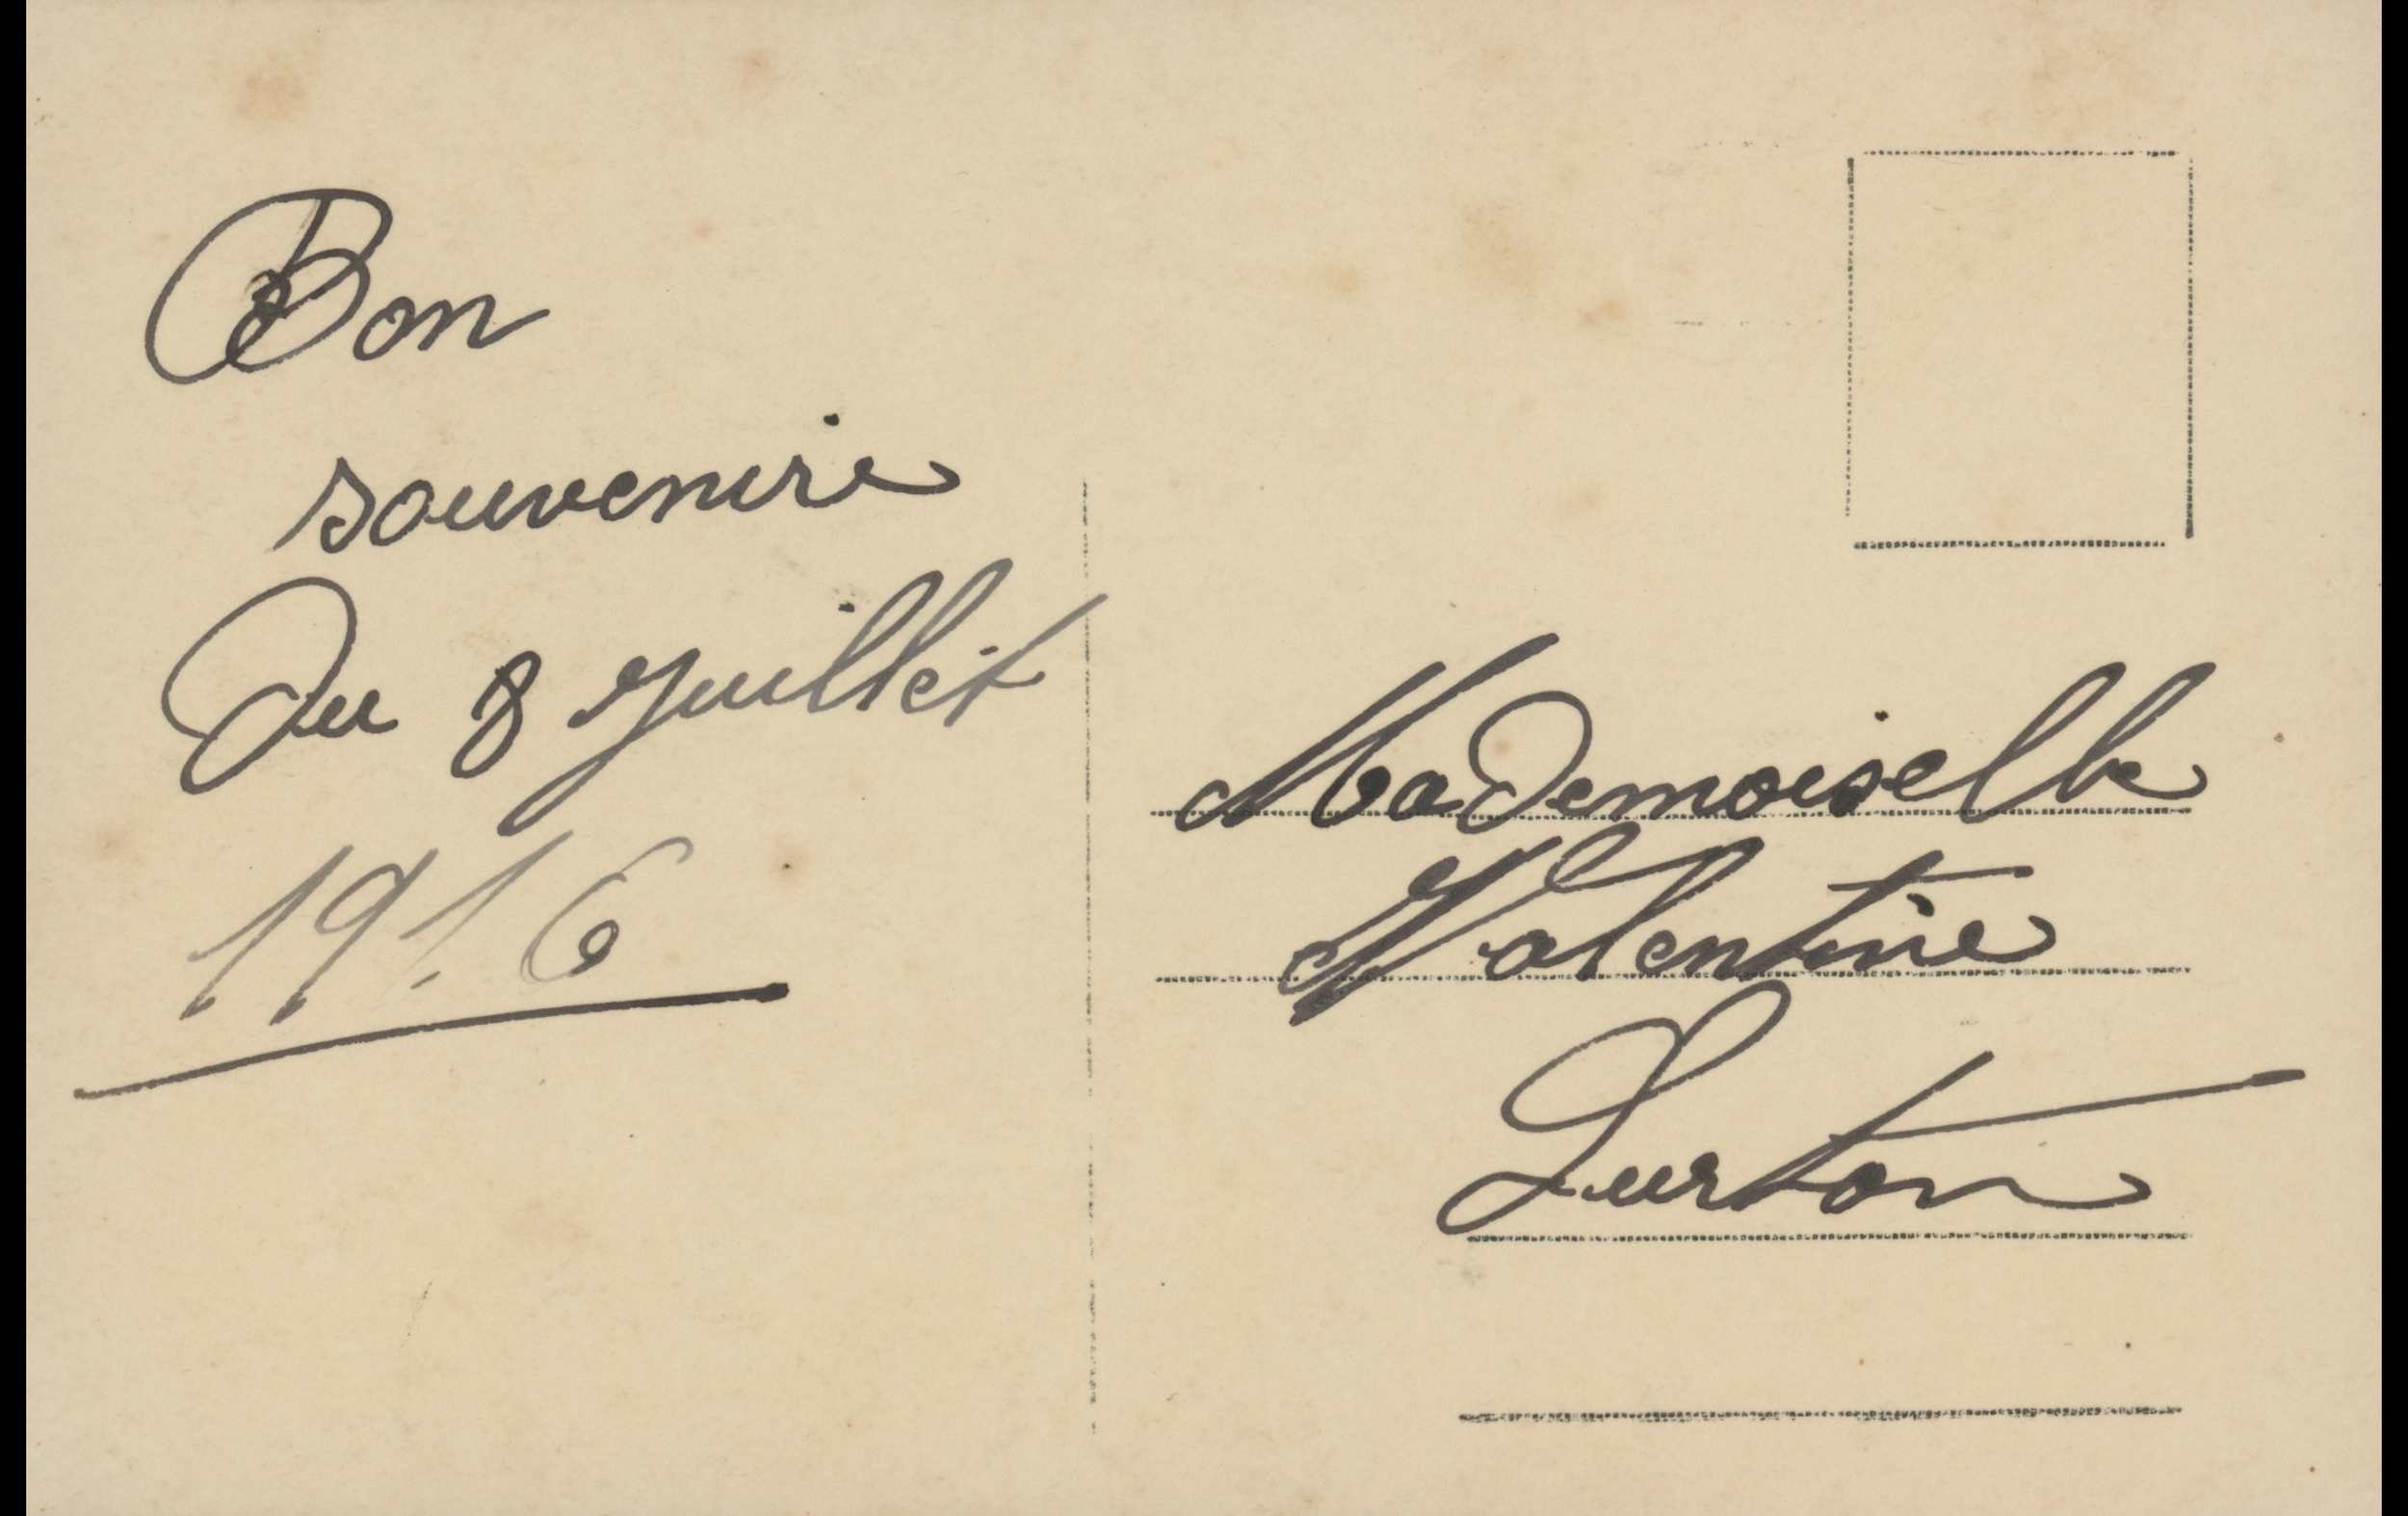 Bon
souvenire
Du 8 Juillet
1916
Mademoiselle
Valentine
Lurton